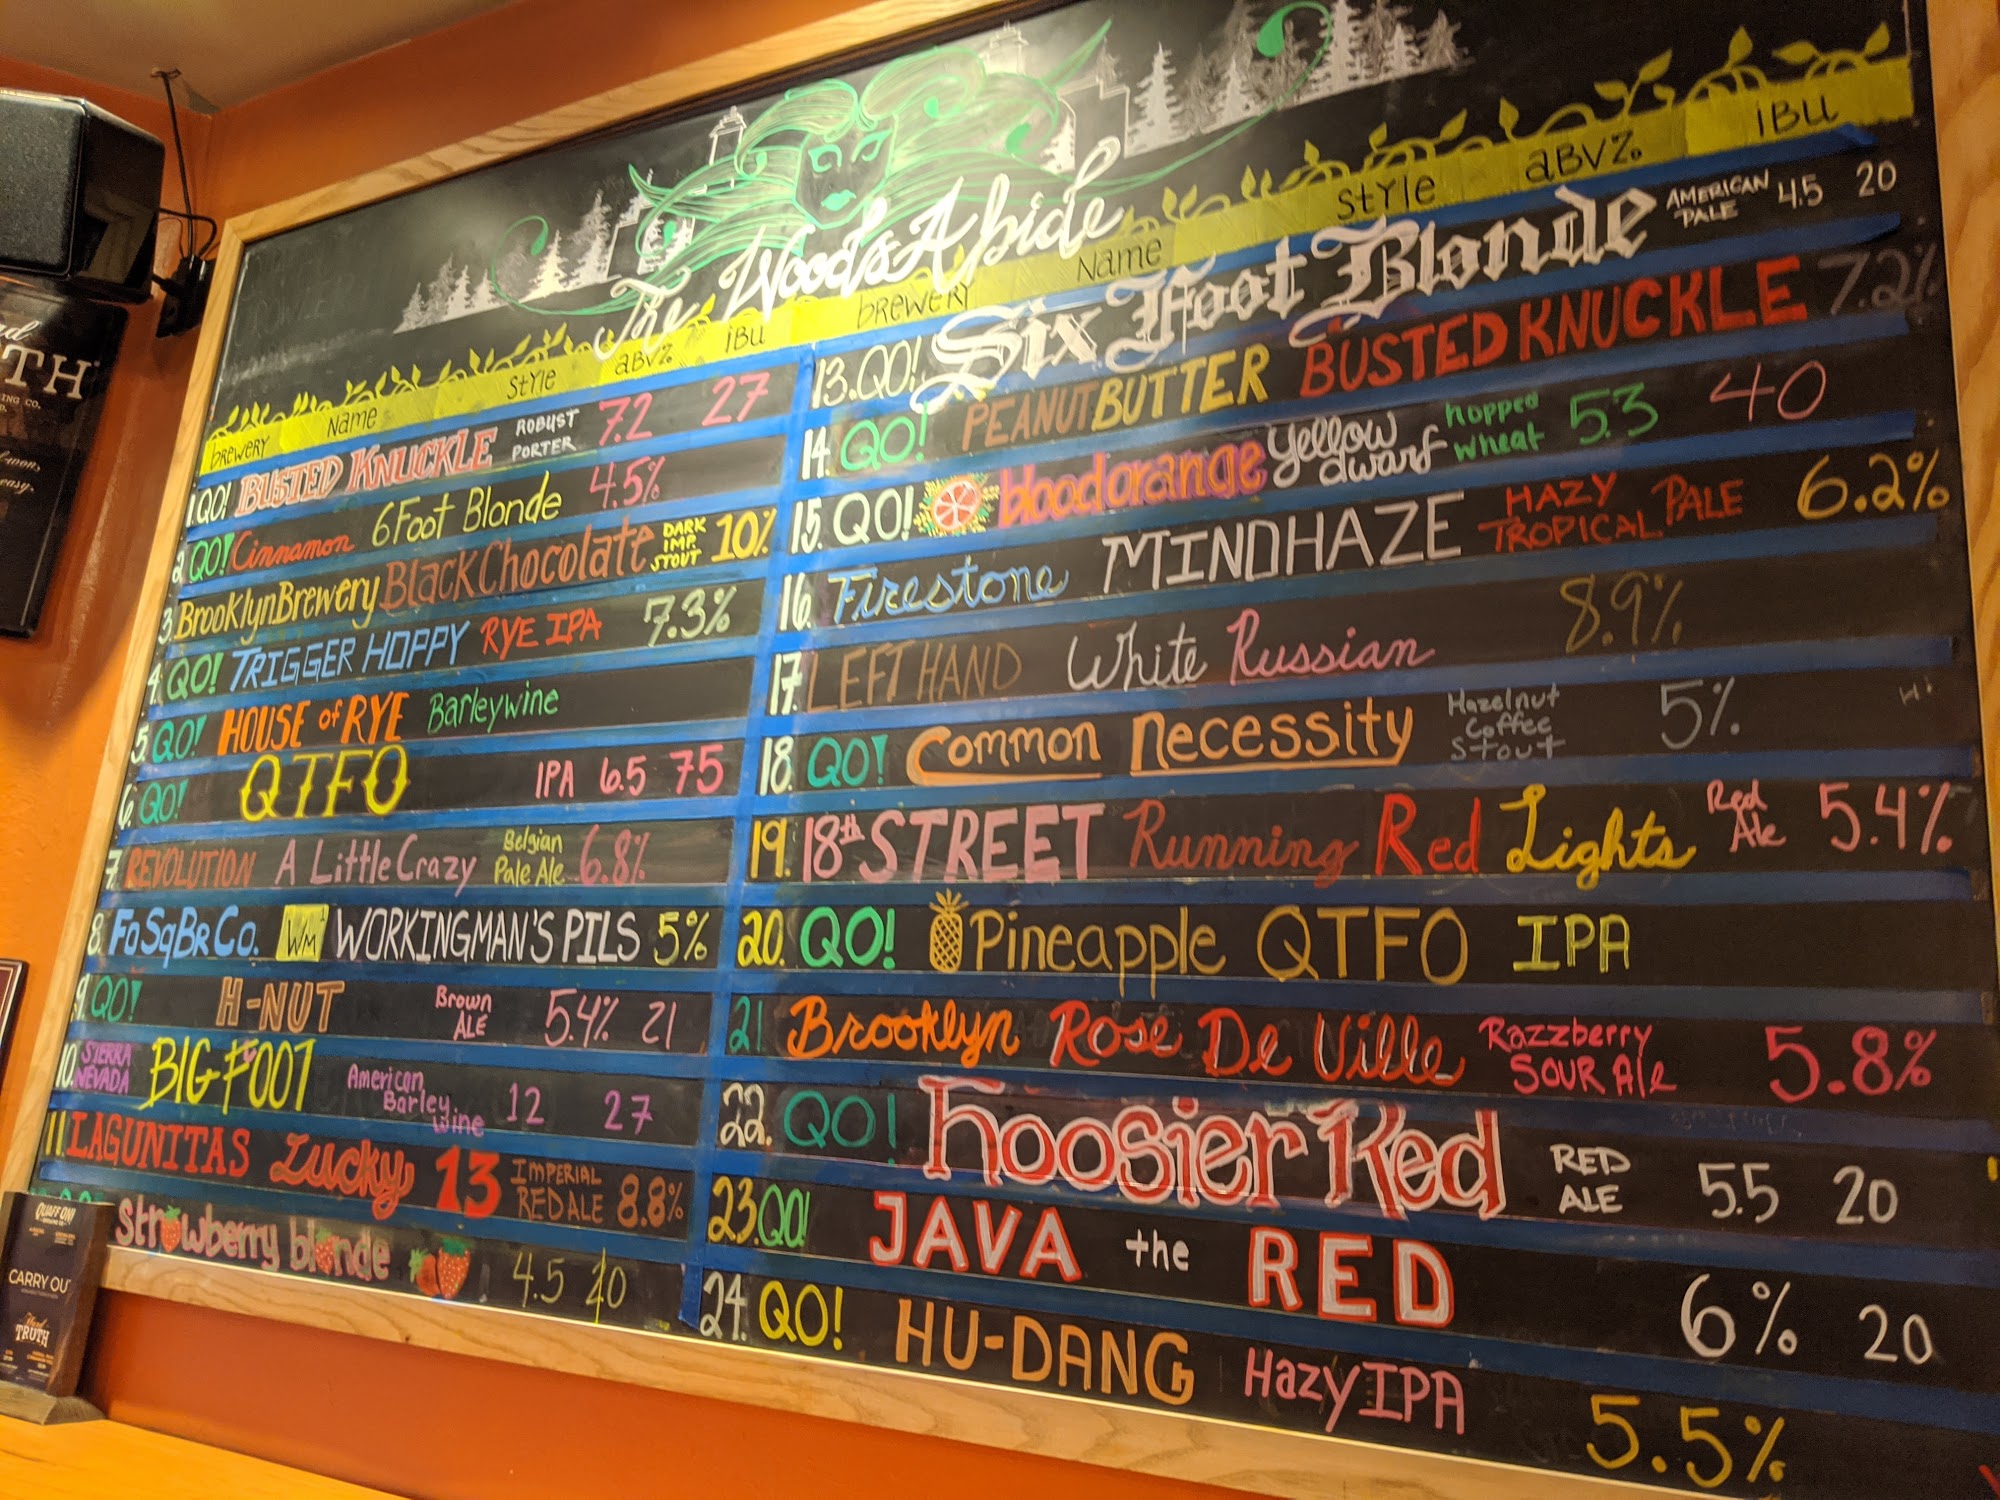 The Woods Abide
brewery Name Style ABV% iBU
1. QO! BUSTED KNUCKLE ROBUST PORTER 7.2 27
2. QO! Cinnamon 6 Foot Blonde 4.5%
3. Brooklyn Brewery Black Chocolate DARK IMP. STOUT 10%
4. QO! TRIGGER HOPPY RYE IPA 7.3%
5. QO! HOUSE of RYE Barleywine
6. QO! QTFO IPA 6.5 75
7. REVOLUTION A Little Crazy Belgian Pale Ale 6.8%
8. FoSqBrCo. WM WORKINGMAN'S PILS 5%
9. QO! H-NUT Brown ALE 5.4% 21
10. SIERRA NEVADA BIGFOOT American Barley wine 12 27
11. LAGUNITAS Lucky 13 IMPERIAL RED ALE 8.8%
strawberry blonde 4.5 20
brewery Name Style ABV% iBU
13. QO! Six Foot Blonde AMERICAN PALE 4.5 20
14. QO! PEANUT BUTTER BUSTED KNUCKLE 7.2%
15. QO! blood orange yellow dwarf hopped wheat 5.3 40
16. Firestone MINDHAZE HAZY TROPICAL PALE 6.2%
17. LEFT HAND White Russian 8.9%
18. QO! Common Necessity Hazelnut Coffee Stout 5%
19. 18th STREET Running Red Lights Red Ale 5.4%
20. QO! Pineapple QTFO IPA
21 Brooklyn Rose De Ville Razzberry SOUR Ale 5.8%
22. QO! Hoosier Red RED ALE 5.5 20
23. QO! JAVA the RED 6% 20
24. QO! HU-DANG Hazy IPA 5.5%
QUAFF ON!
CARRY OU
Hard
TRUTH
TH
ING CO.
easy.